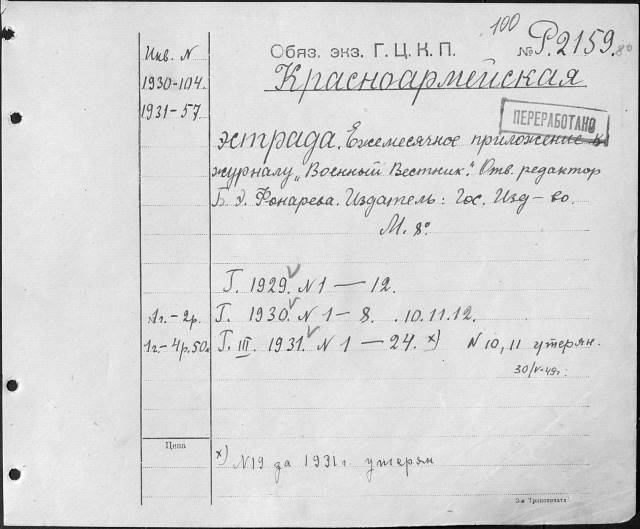 100
Инв. N
1930-104
1931-57
Обяз. экз. Г.Ц.К.П.
№ Р.2159. 8°
Красноармейская
ПЕРЕРАБОТАНО
эстрада. Ежемесячное приложение к
журналу „Военный Вестник". Отв. редактор
Б. Д. Фонарева. Издатель: Гос. Изд-во.
М. 8°
Г. 1929. N 1 — 12.
1г.-2р. Г. 1930. N 1 — 8. .10.11.12.
1г.-4р.50к. Г. III. 1931. N 1 — 24. x) N 10, 11 утерян.
30/V-49г.
Цена
x) N19 за 1931г. утерян
3-я Транспечати